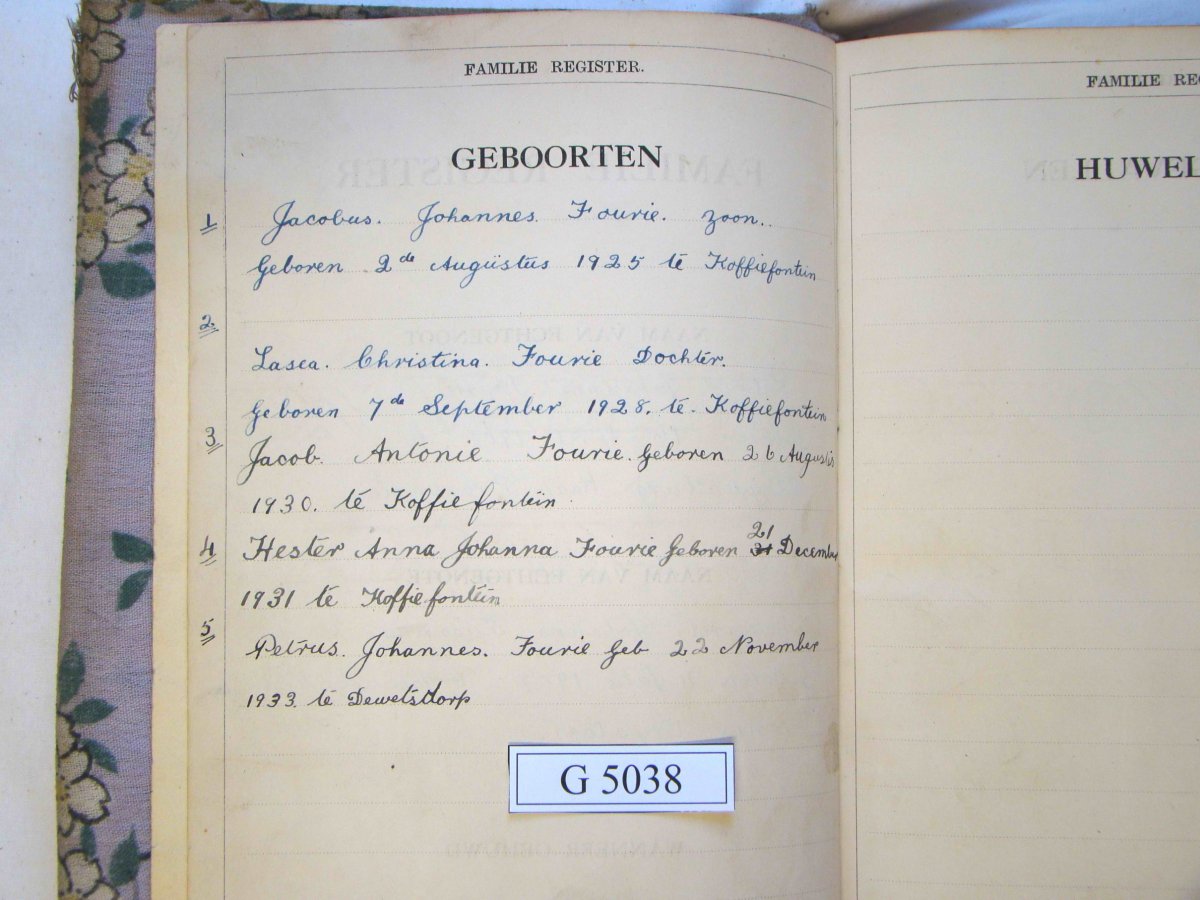 FAMILIE REGISTER.
GEBOORTEN
1 Jacobus. Johannes. Fourie. zoon..
Geboren 2de Augüstus 1925 te Koffiefontein
2
Lasea. Christina. Fourie Dochter.
Geboren 7de September 1928. te. Koffiefontein
3 Jacob. Antonie Fourie. Geboren 26 Augustis
1930. te Koffiefontein
4 Hester Anna Johanna Fourie Geboren 21 December
1931 te Koffiefontein
5
Petrus. Johannes. Fourie Geb 22 November
1933. te Dewetsdorp
G 5038
FAMILIE REG
HUWEL